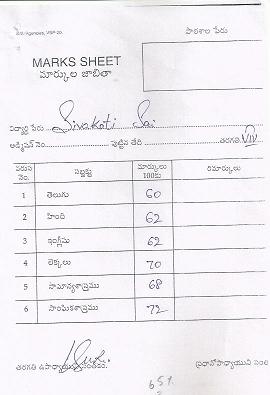 S.V. Agencies, VSP-20.
పాఠశాల పేరు
MARKS SHEET
మార్కుల జాబితా
విద్యార్థి పేరు Sivakoti Sai
అడ్మిషన్ నెం. పుట్టిన తేది తరగతి VIV
వరుస నెం. సబ్జెక్టు మార్కులు 100కు రిమార్కులు
1 తెలుగు 60
2 హింది 62
3 ఇంగ్లీషు 62
4 లెక్కలు 70
5 సామాన్యశాస్త్రము 68
6 సాంఘికశాస్త్రము 72
తరగతి ఉపాధ్యాయుని సంతకం. ప్రధానోపాధ్యాయుని సంత
65%